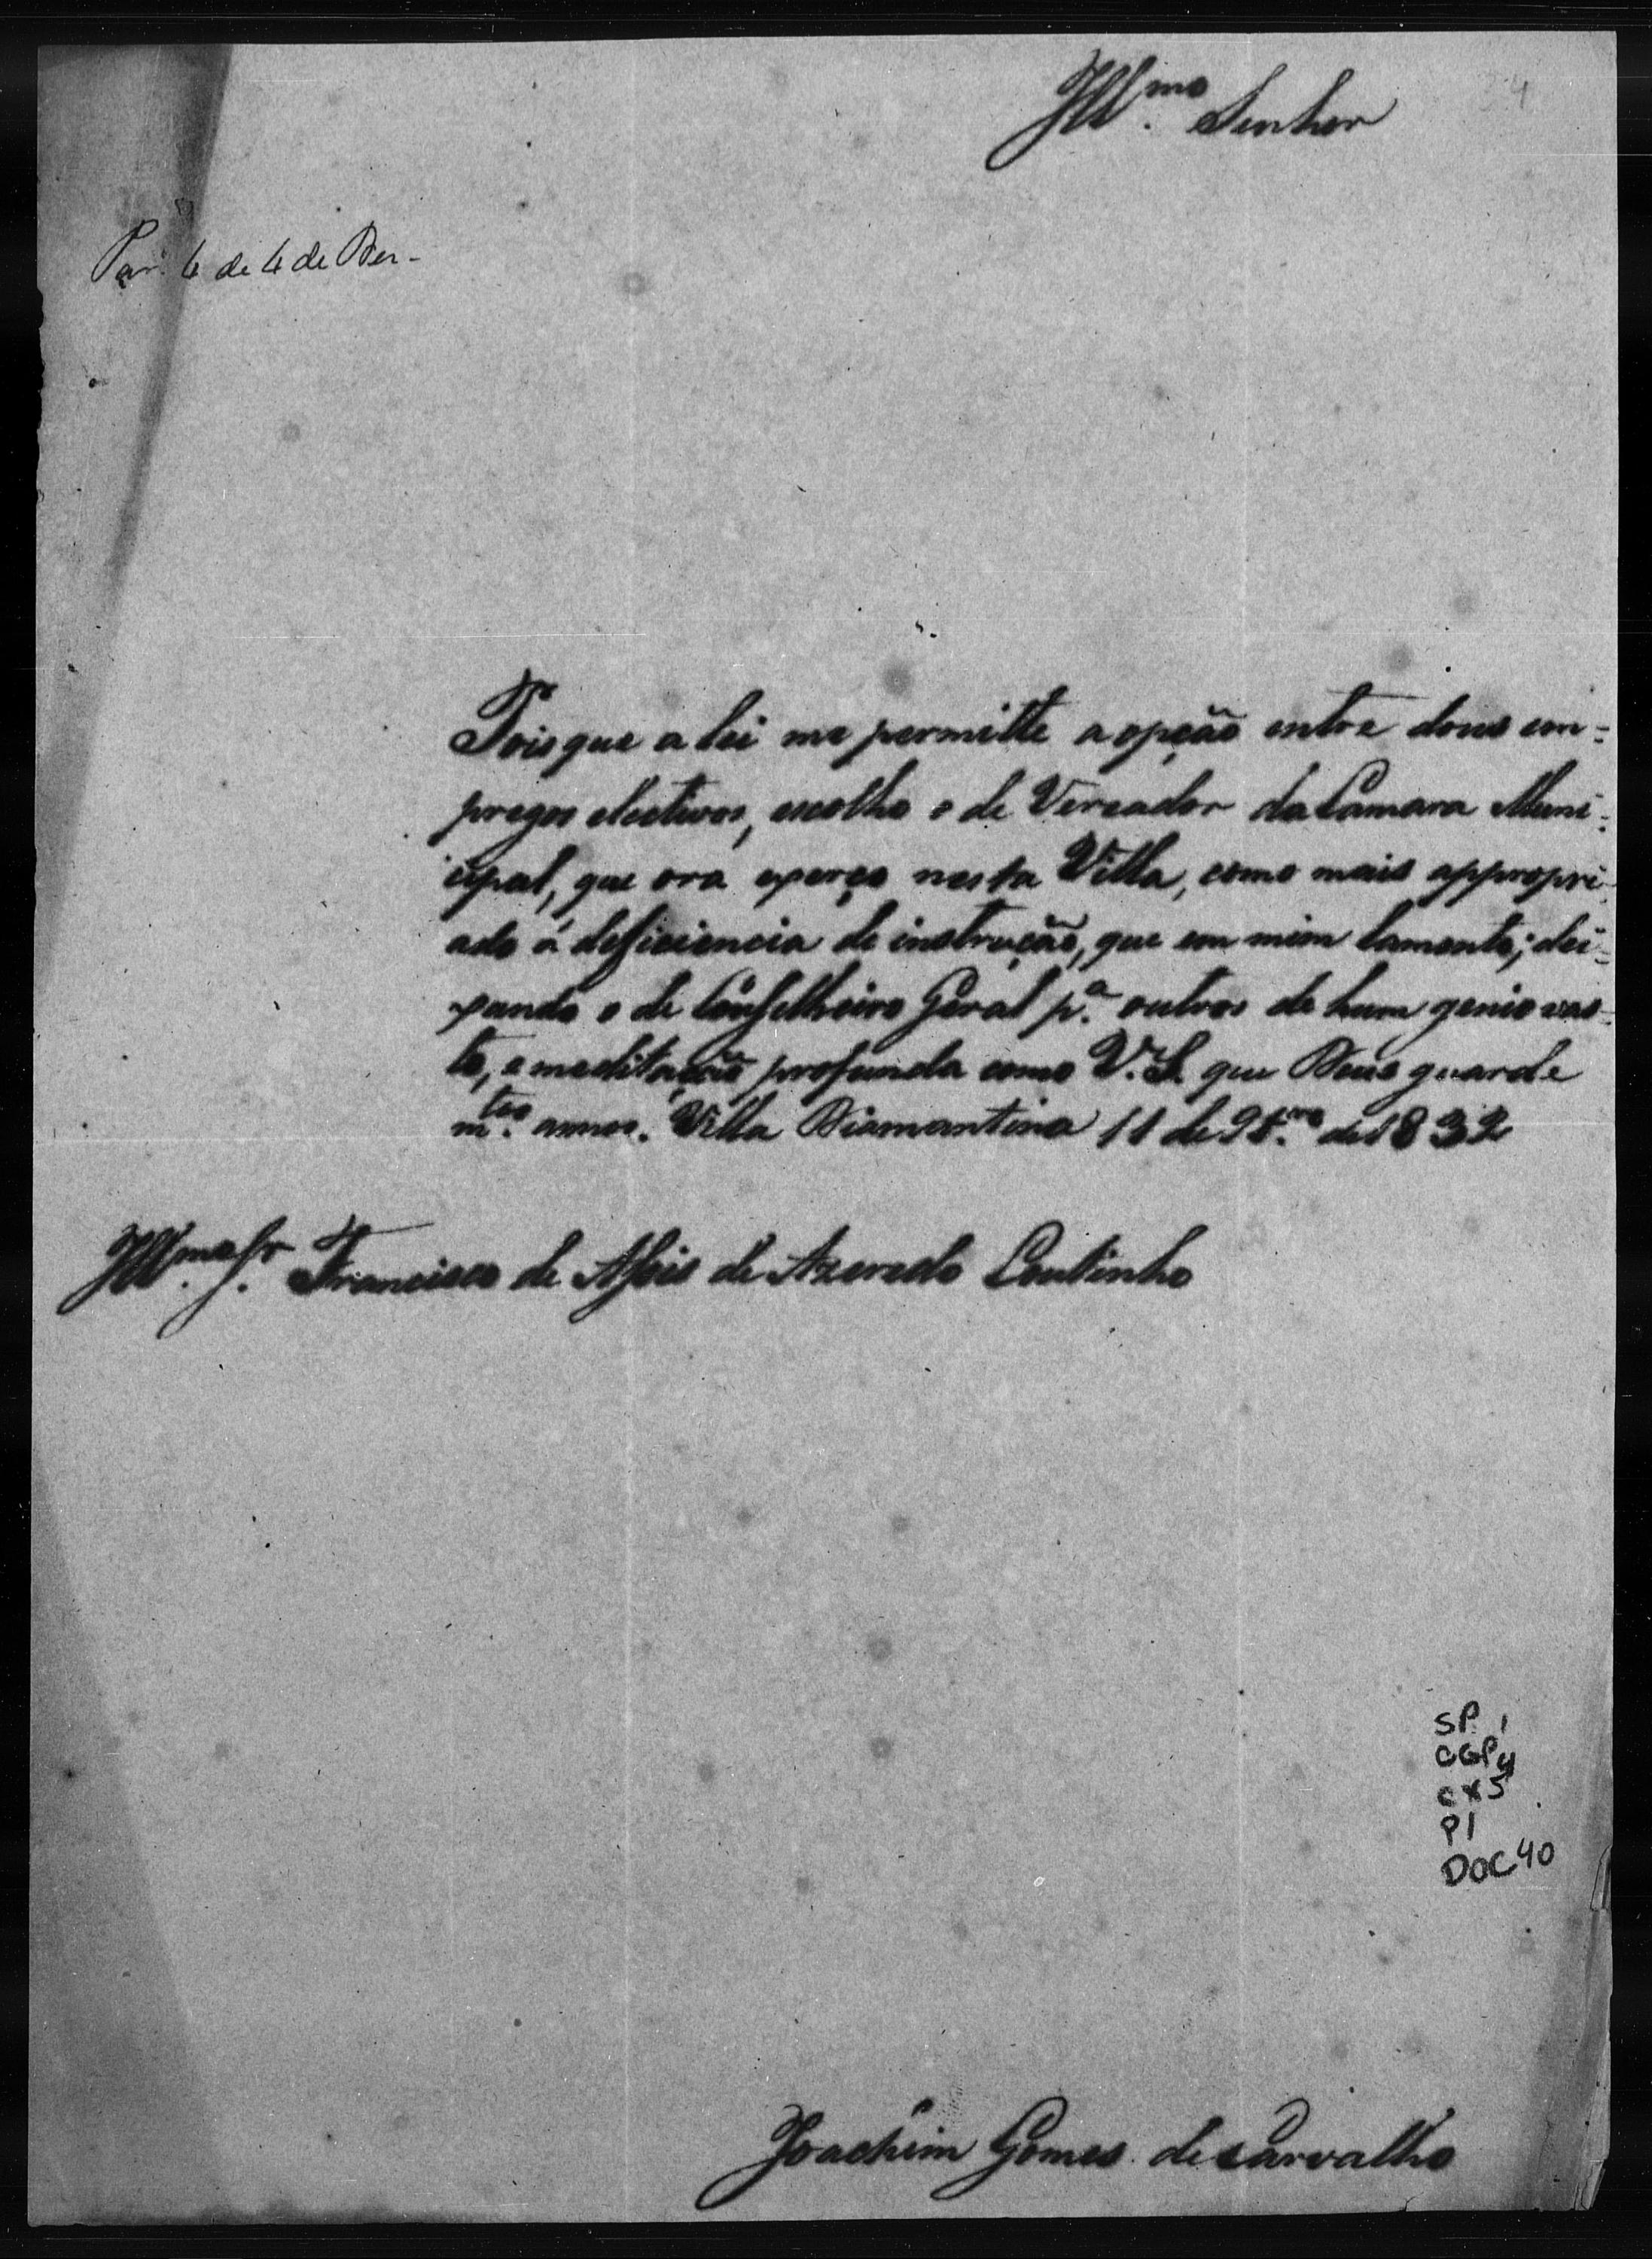 Ill.mo Senhor
Par. 6 de 4 de Der.
Pois que a lei me permitte a opção entre dous em=
pregos electivos, escolho o de Vereador da Camara Muni=
cipal, que ora exerço nesta Villa, como mais appropri=
ado á defficiencia de instrucção, que em mim lamento; dei=
xando o de Conselheiro Geral p.a outros de hum genio vas=
to, e meditação profunda como V. S. que Deos guarde
m.tos annos. Villa Diamantina 11 de 9br.o de 1832
Ill.mo Sr. Francisco de Assis de Azeredo Coutinho
SP 1
CGP4
CX5
P1
DOC 40
Joachim Gomes de Carvalho